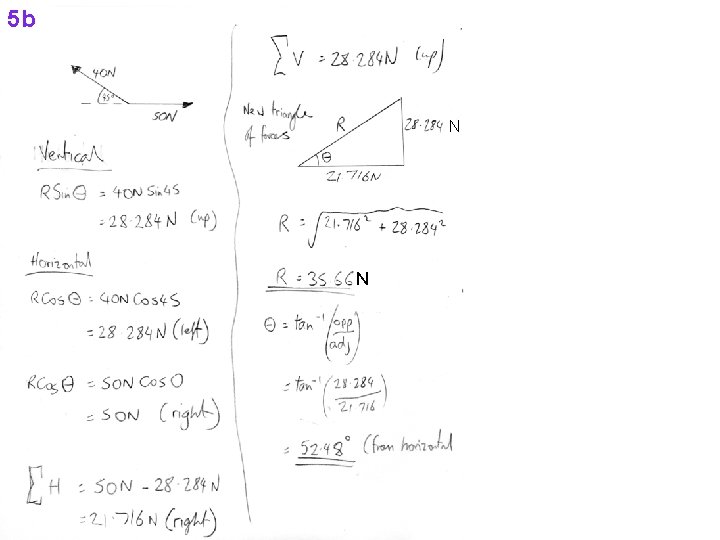 5b
40N
45°
50N
Vertical
RSinθ = 40N Sin45
= 28.284N (up)
Horizontal
RCosθ = 40N Cos45
= 28.284N (left)
RCosθ = 50N Cos0
= 50N (right)
∑H = 50N - 28.284N
= 21.716N (right)
∑V = 28.284N (up)
New triangle
of forces
R
28.284 N
θ
21.716N
R = √21.716² + 28.284²
R = 35.66N
θ = tan⁻¹(opp/adj)
= tan⁻¹(28.284/21.716)
= 52.48° (from horizontal